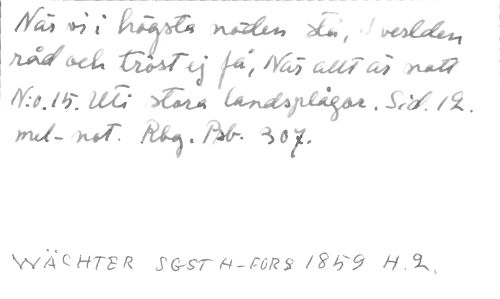 När vi i högsta nöden stå, I verlden
råd och tröst ej få, När allt är natt
N:o. 15. Uti stora landsplågor. Sid. 12.
mel-not. Rbg. Psb. 307.
WÄCHTER SGST H-FORS 1859 H.2.